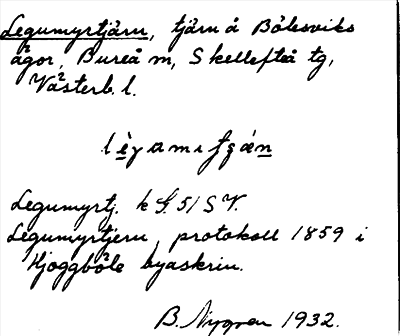 Legumyrtjärn, tjärn å Bölesviks
ägor, Bureå sn, Skellefteå tg,
Västerb. l.
Legumyrtj. k G. 51 S V.
Legumyrtjern, protokoll 1859 i
Hjoggböle byaskrin.
B. Nygren 1932.